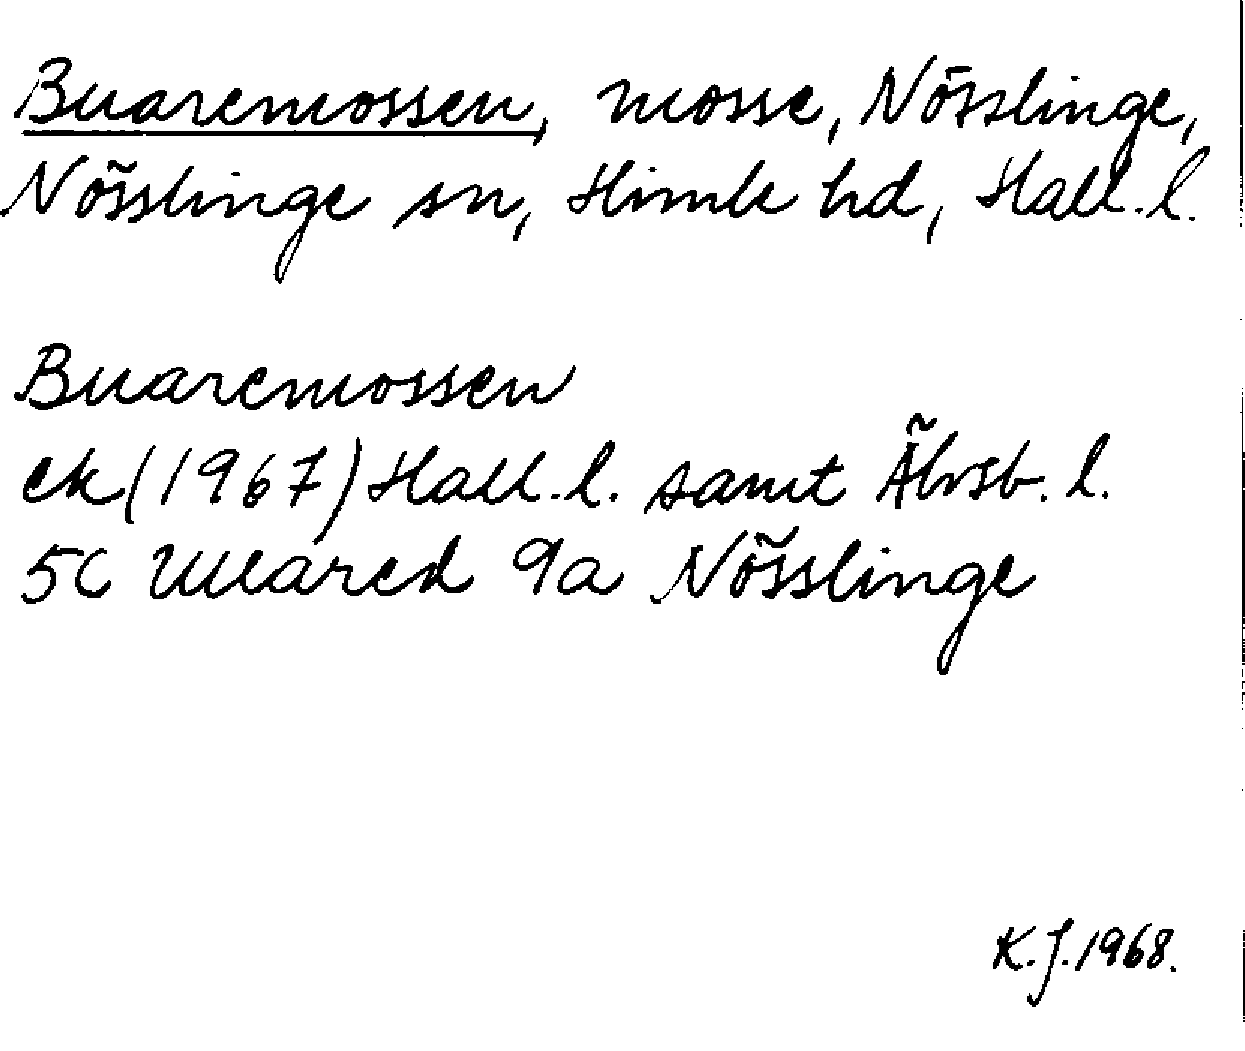 Buaremossen, mosse, Nösslinge,
Nösslinge sn, Himle hd, Hall. l.
Buaremossen
ek (1967) Hall. l. samt Älvsb. l.
5C Ullared 9a Nösslinge
K.J. 1968.